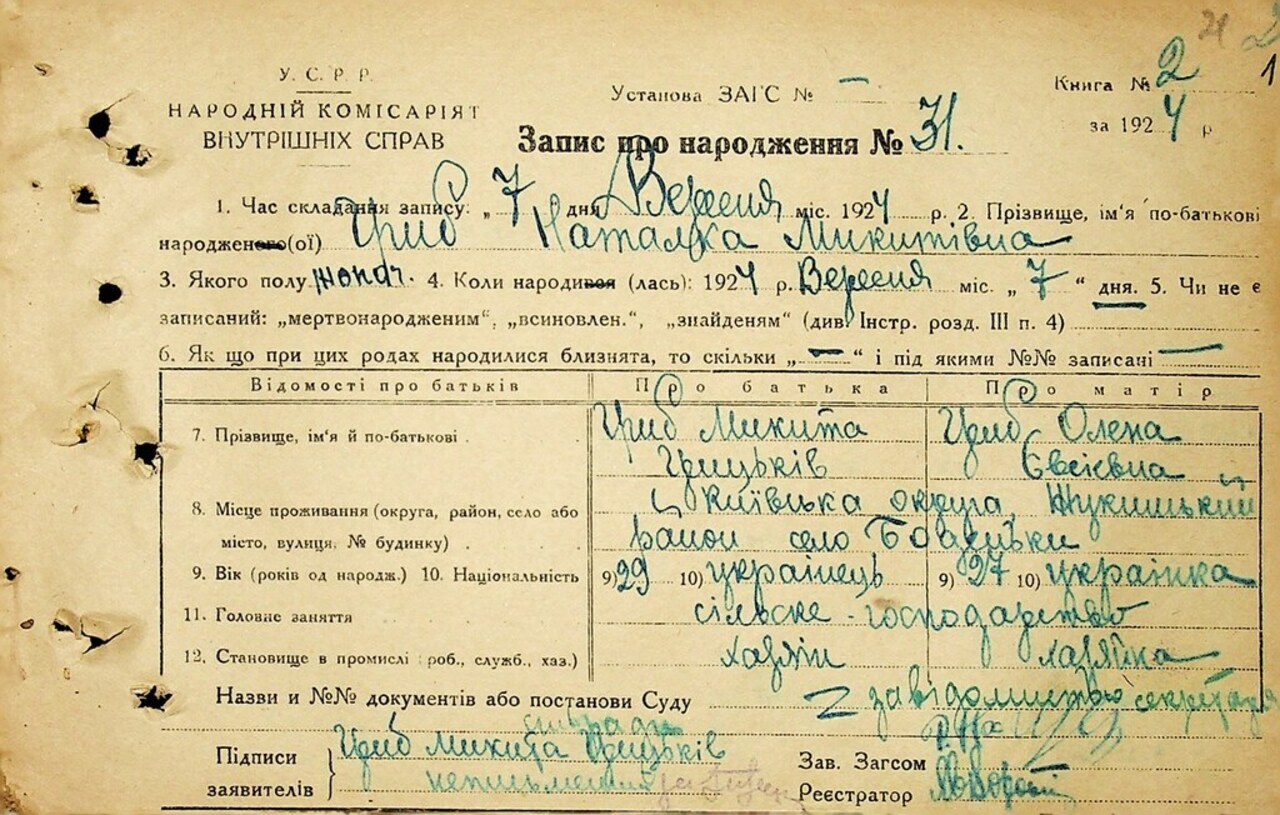 У. С. Р. Р.
НАРОДНІЙ КОМІСАРІЯТ
ВНУТРІШНІХ СПРАВ
Установа ЗАГС № —
Книга № 2
1
за 1924 р
Запис про народження № 31.
1. Час складання запису: „7 дня Вересня міс. 1924 р. 2. Прізвище, ім'я по-батькові
народженого(ої) Гриб Наталка Микитівна
3. Якого полу жіноч. 4. Коли народився (лась): 1924 р. Вересня міс. „ 7 “ дня. 5. Чи не є
записаний: „мертвонародженим“, „всиновлен.“, „знайденям“ (див. Інстр. розд. III п. 4)
6. Як що при цих родах народилися близнята, то скільки „ — “ і під якими №№ записані —
Відомості про батьків Про батька Про матір
7. Прізвище, ім'я й по-батькові Гриб Микита Гриб Олена
Грицьків Євсієвна
8. Місце проживання (округа, район, село або Київська округа Жукинський
місто, вулиця, № будинку) район село Боденьки
9. Вік (років од народж.) 10. Національність 9) 29 10) українець 9) 27 10) українка
11. Головне заняття сільске-господарство
12. Становище в промислі (роб., служб., хаз.) Хазяін хазяйка
Назви и №№ документів або постанови Суду З завідомистью секретаря
сільради
Підписи Гриб Микита Грицьків
заявителів неписьменний
Зав. Загсом
Реєстратор